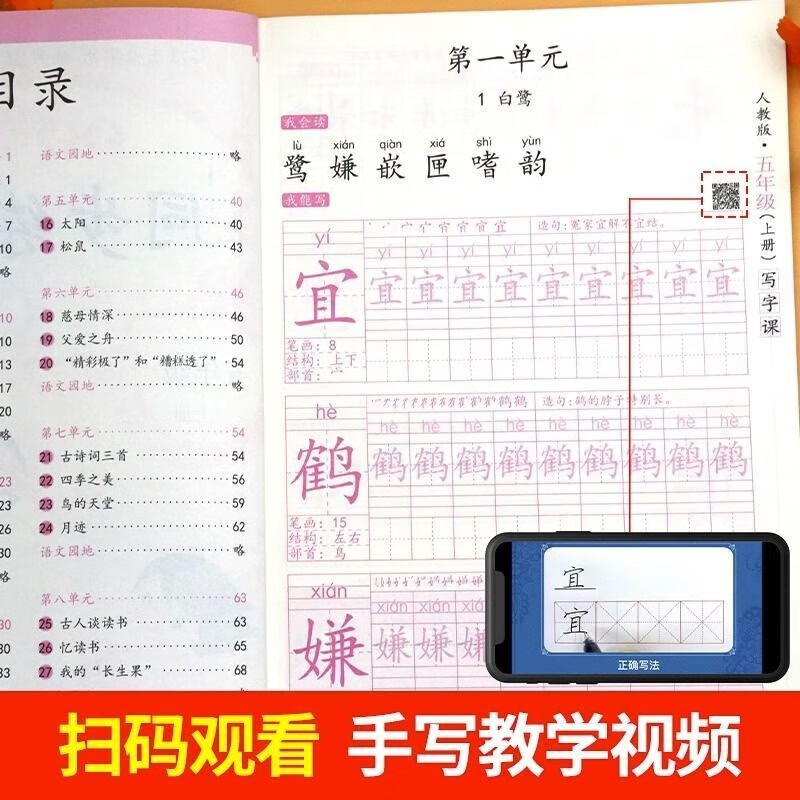 目录
1
语文园地 略
1
第五单元 40
4
16 太阳 40
7
17 松鼠 43
10
略
第六单元 46
10
18 慈母情深 46
16
19 父爱之舟 50
12
20 “精彩极了”和“糟糕透了” 54
17
语文园地 略
20
略
第七单元 54
21 古诗词三首 54
23
22 四季之美 56
23
23 鸟的天堂 59
26
24 月迹 62
30
语文园地 略
略
第八单元 63
30
25 古人谈读书 63
30
26 忆读书 65
33
27 我的“长生果” 68
第一单元
1 白鹭
我会读
lù xián qiàn xiá shì yùn
鹭 嫌 嵌 匣 嗜 韵
我能写
yí
造句:冤家宜解不宜结。
yí yí yí yí yí yí yí yí
宜
宜 宜 宜 宜 宜 宜 宜 宜
笔画：8
结构：上下
部首：宀
hè
造句:鹤的脖子特别长。
hè hè hè hè hè hè hè hè
鹤
鹤 鹤 鹤 鹤 鹤 鹤 鹤 鹤
笔画：15
结构：左右
部首：鸟
xián
xián xián xián
嫌
嫌 嫌 嫌
人教版·五年级(上册)写字课
宜
宜
正确写法
扫码观看 手写教学视频